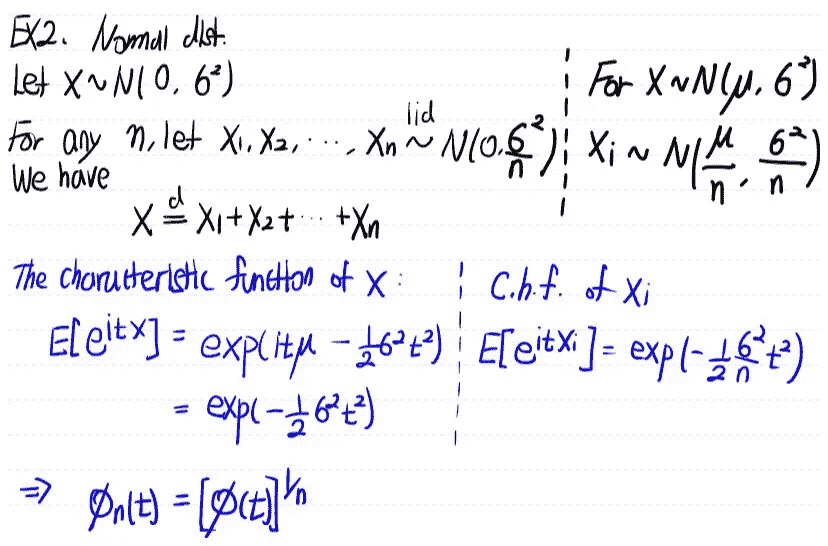 EX2. Normal dist.
Let X ~ N(0, σ²)
For any n, let X₁, X₂, ⋯, Xₙ iid ~ N(0, σ²/n)
We have
X d= X₁ + X₂ + ⋯ + Xₙ
For X ~ N(μ, σ²)
Xᵢ ~ N(μ/n, σ²/n)
The characteristic function of X :
E[e^{itX}] = exp(itμ - 1/2 σ²t²)
= exp(-1/2 σ²t²)
C.h.f. of Xᵢ
E[e^{itXᵢ}] = exp(-1/2 σ²/n t²)
⇒ φₙ(t) = [φ(t)]^{1/n}